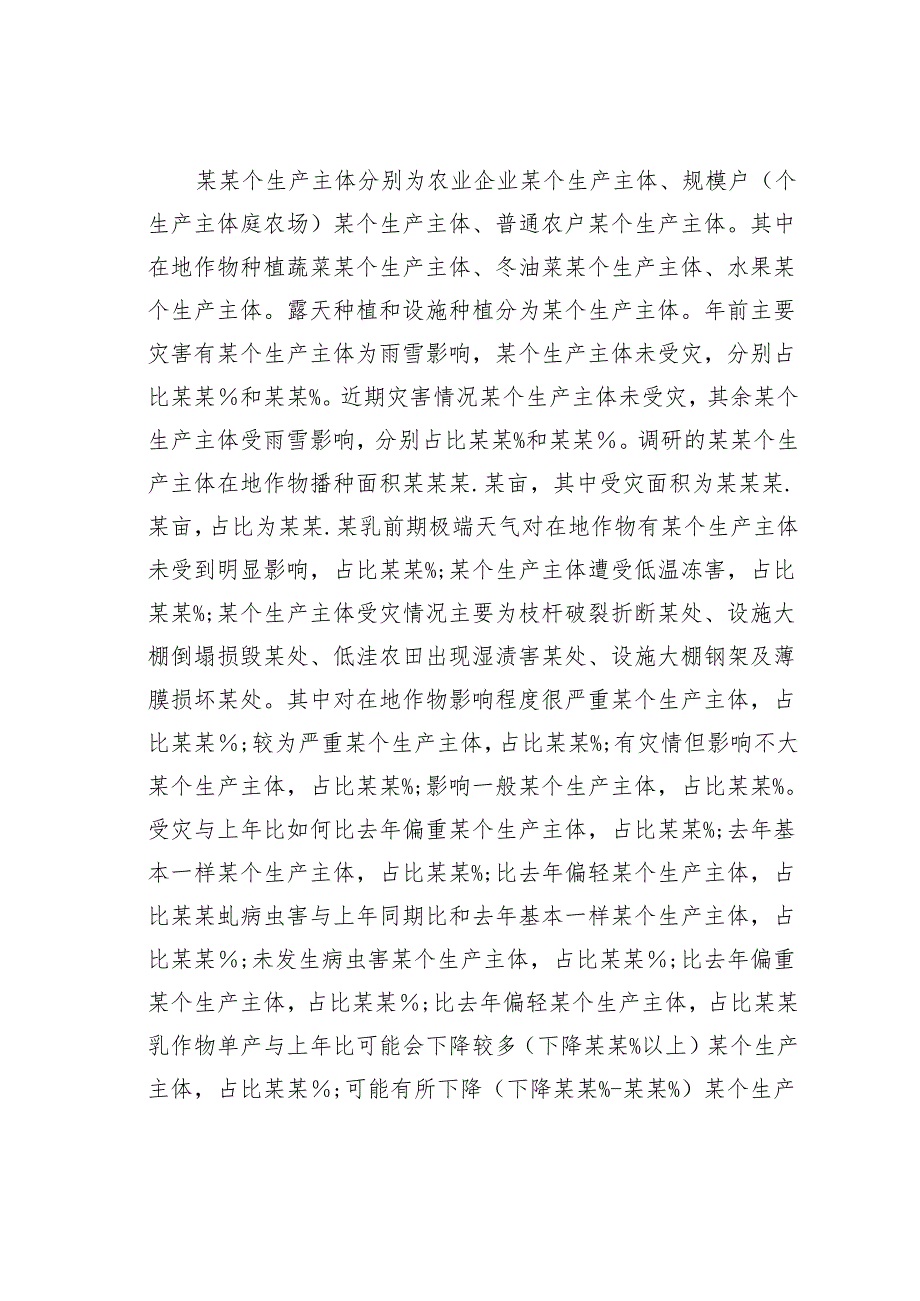 某某个生产主体分别为农业企业某个生产主体、规模户（个
生产主体庭农场）某个生产主体、普通农户某个生产主体。其中
在地作物种植蔬菜某个生产主体、冬油菜某个生产主体、水果某
个生产主体。露天种植和设施种植分为某个生产主体。年前主要
灾害有某个生产主体为雨雪影响，某个生产主体未受灾，分别占
比某某％和某某%。近期灾害情况某个生产主体未受灾，其余某个
生产主体受雨雪影响，分别占比某某%和某某％。调研的某某个生
产主体在地作物播种面积某某某.某亩，其中受灾面积为某某某.
某亩，占比为某某.某乳前期极端天气对在地作物有某个生产主体
未受到明显影响，占比某某%;某个生产主体遭受低温冻害，占比
某某%;某个生产主体受灾情况主要为枝杆破裂折断某处、设施大
棚倒塌损毁某处、低洼农田出现湿渍害某处、设施大棚钢架及薄
膜损坏某处。其中对在地作物影响程度很严重某个生产主体，占
比某某％;较为严重某个生产主体，占比某某%;有灾情但影响不大
某个生产主体，占比某某%;影响一般某个生产主体，占比某某%。
受灾与上年比如何比去年偏重某个生产主体，占比某某%;去年基
本一样某个生产主体，占比某某%;比去年偏轻某个生产主体，占
比某某虬病虫害与上年同期比和去年基本一样某个生产主体，占
比某某％;未发生病虫害某个生产主体，占比某某％;比去年偏重
某个生产主体，占比某某％;比去年偏轻某个生产主体，占比某某
乳作物单产与上年比可能会下降较多（下降某某%以上）某个生产
主体，占比某某％;可能有所下降（下降某某%-某某%）某个生产